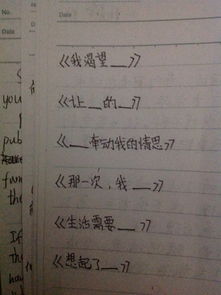 No.
Date
Date
《我渴望__》
《让__的__》
you
《__牵动我的情思》
pub
fam
《那一次，我__》
the
《生活需要__》
If
the
《想起了__》
ha